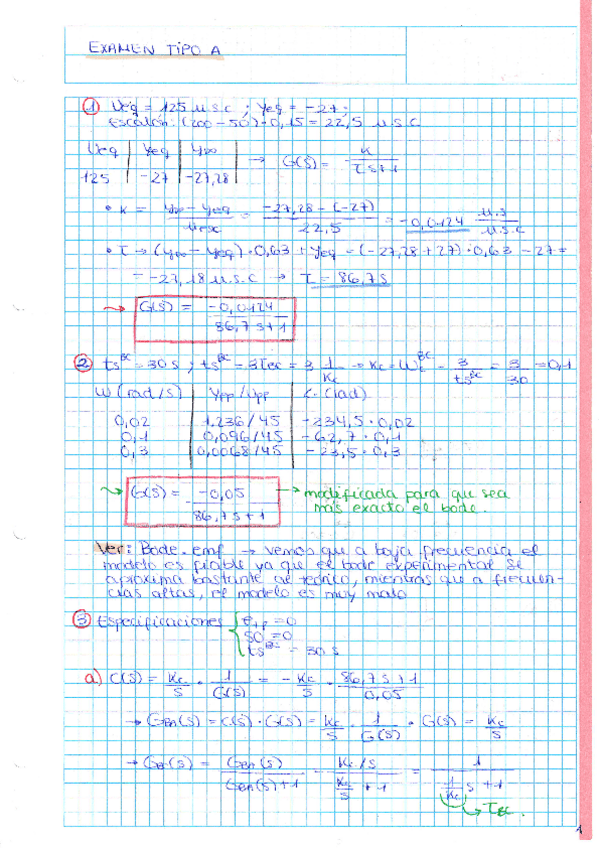 EXAMEN TIPO A
① Ueq = 125 u.s.c ; Yeq = -27 ;
Escalón: (200-50)·0,15 = 22,5 u.s.c
Ueq | Yeq | Y∞ → G(s) = K / (τs+1)
125 | -27 | -27,28
• K = (Y∞ - Yeq) / Uesc = (-27,28 - (-27)) / 22,5 = -0,0124 u.s / u.s.c
• τ → (Y∞ - Yeq)·0,63 + Yeq = (-27,28+27)·0,63 - 27 =
= -27,18 u.s.c → τ = 86,7 s
→ G(s) = -0,0124 / (86,7s+1)
② ts^BC = 30 s ; ts^BC = 3τBC = 3 1/Kc → Kc = Wc^BC = 3 / ts^BC = 3/30 = 0,1
W (rad/s) | Ypp/Upp | ∠ (rad)
0,02 | 1,236/45 | -234,5·0,02
0,1 | 0,096/45 | -62,7·0,1
0,3 | 0,0068/45 | -23,5·0,3
→ G(s) = -0,05 / (86,7s+1) → modificada para que sea
más exacto el bode.
Ver: Bode.emf → vemos que a baja frecuencia el
modelo es fiable ya que el bode experimental se
aproxima bastante al teórico, mientras que a frecuen-
cias altas, el modelo es muy malo
③ Especificaciones { erp = 0
SO = 0
ts^BC = 30 s
a) C(s) = Kc/s · 1/G(s) = -Kc/s · (86,7s+1)/0,05
→ GBA(s) = C(s)·G(s) = Kc/s · 1/G(s) · G(s) = Kc/s
→ GBC(s) = GBA(s) / (GBA(s)+1) = (Kc/s) / (Kc/s + 1) = 1 / (1/Kc s + 1)
→ τBC.
1